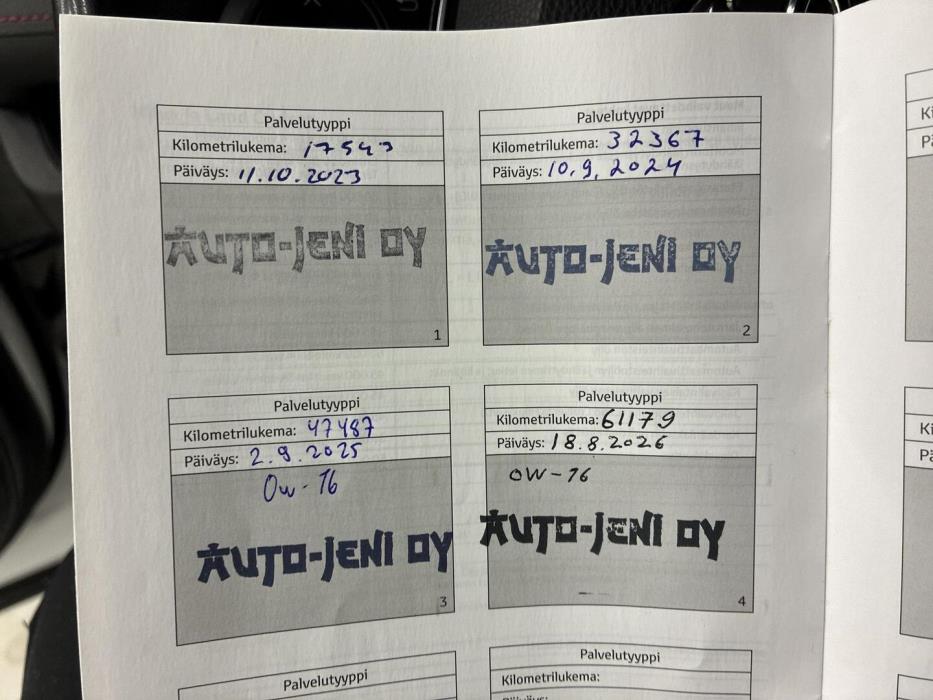 Palvelutyyppi
Kilometrilukema: 17543
Päiväys: 11.10.2023
AUTO-JENI OY
1
Palvelutyyppi
Kilometrilukema: 32367
Päiväys: 10.9.2024
AUTO-JENI OY
2
Palvelutyyppi
Kilometrilukema: 47487
Päiväys: 2.9.2025
OW-16
AUTO-JENI OY
3
Palvelutyyppi
Kilometrilukema: 61179
Päiväys: 18.8.2026
OW-16
AUTO-JENI OY
4
Palvelutyyppi
Palvelutyyppi
Kilometrilukema: